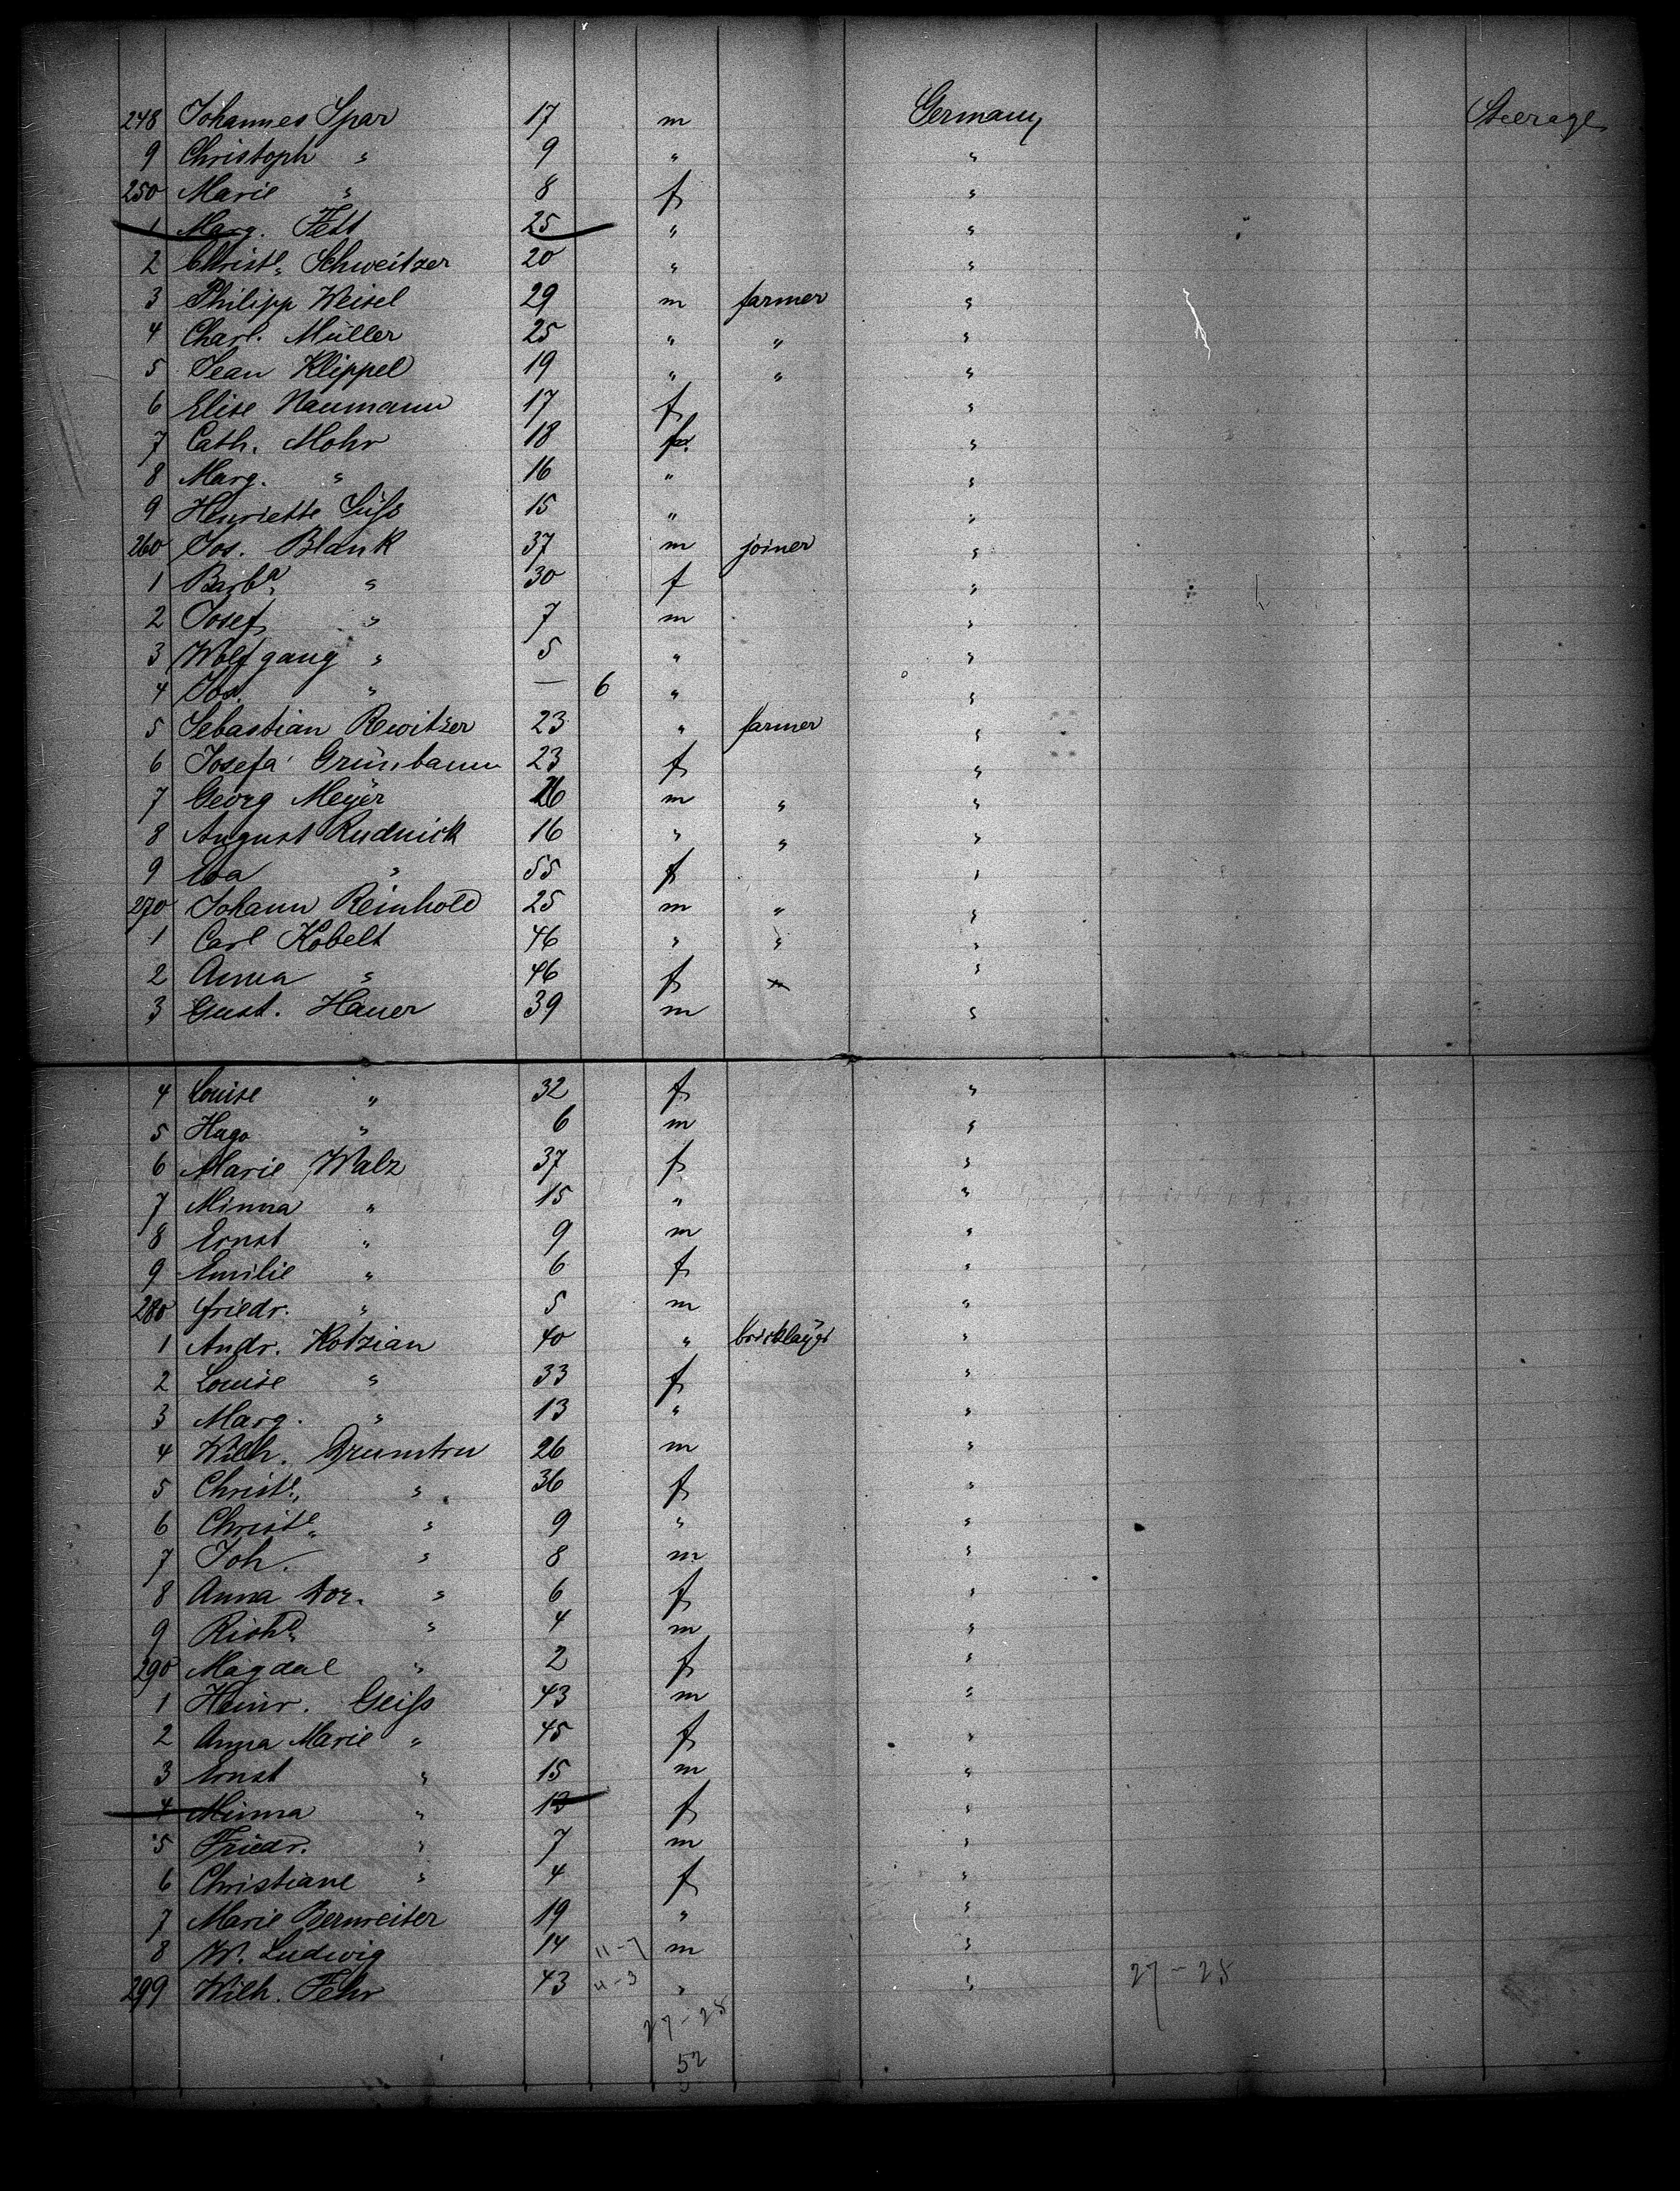 248 Johannes Spar 17 m Germany Steerage
9 Christoph " 9 " "
250 Marie " 8 f "
1 Marg. Fett 25 " "
2 Christe. Schweitzer 20 " "
3 Philipp Weisel 29 m farmer "
4 Charl. Müller 25 " " "
5 Jean Klippel 19 " " "
6 Elise Naumann 17 f "
7 Cath. Mohr 18 f. "
8 Marg. " 16 " "
9 Henriette Süfs 15 " "
260 Jos. Blank 37 m joiner "
1 Barba " 30 f "
2 Josef " 7 m "
3 Wolfgang " 5 " "
4 Jos. " — 6 " "
5 Sebastian Rewitzer 23 " farmer "
6 Josefa Grünbaum 23 f "
7 Georg Meyer 26 m " "
8 August Rudnick 16 " " "
9 Eva " 55 f "
270 Johann Reinhold 25 m " "
1 Carl Kobelt 46 " " "
2 Anna " 46 f "
3 Gust. Hauer 39 m "
4 Louise " 32 f "
5 Hugo " 6 m "
6 Marie Walz 37 f "
7 Minna " 15 " "
8 Ernst " 9 m "
9 Emilie " 6 f "
280 Friedr. " 5 m "
1 Andr. Kotzian 40 " "
2 Louise " 33 f "
3 Marg. " 13 " "
4 Wilh. 26 m "
5 Christe. " 36 f "
6 Christe " 9 " "
7 Joh. " 8 m "
8 Anna Dor. " 6 f "
9 Richd " 4 m "
290 Magdal " 2 f "
1 Heinr. Geifs 43 m "
2 Anna Marie " 45 f "
3 Ernst " 15 m "
4 Minna " 13 f "
5 Friedr. " 7 m "
6 Christiane " 4 f "
7 Marie Bermeiter 19 " "
8 W. Ludwig 14 11-7 m "
299 Wilh. Fehr 43 4-3 " " 27-25
27-25
52